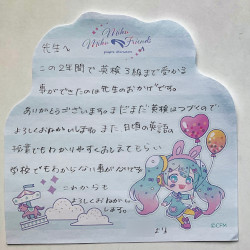 Miku
Miku Friends
先生へ
この2年間で英検3級まで受かる
事ができたのは先生のおかげです。
ありがとうございます。まだまだ英検はつづくので
よろしくおねがいします。また、日頃の英語の
授業でもわかりやすくおしえてもらい
学校でもわからない事がなくて
これからも
よろしくおねがいし
します。
より